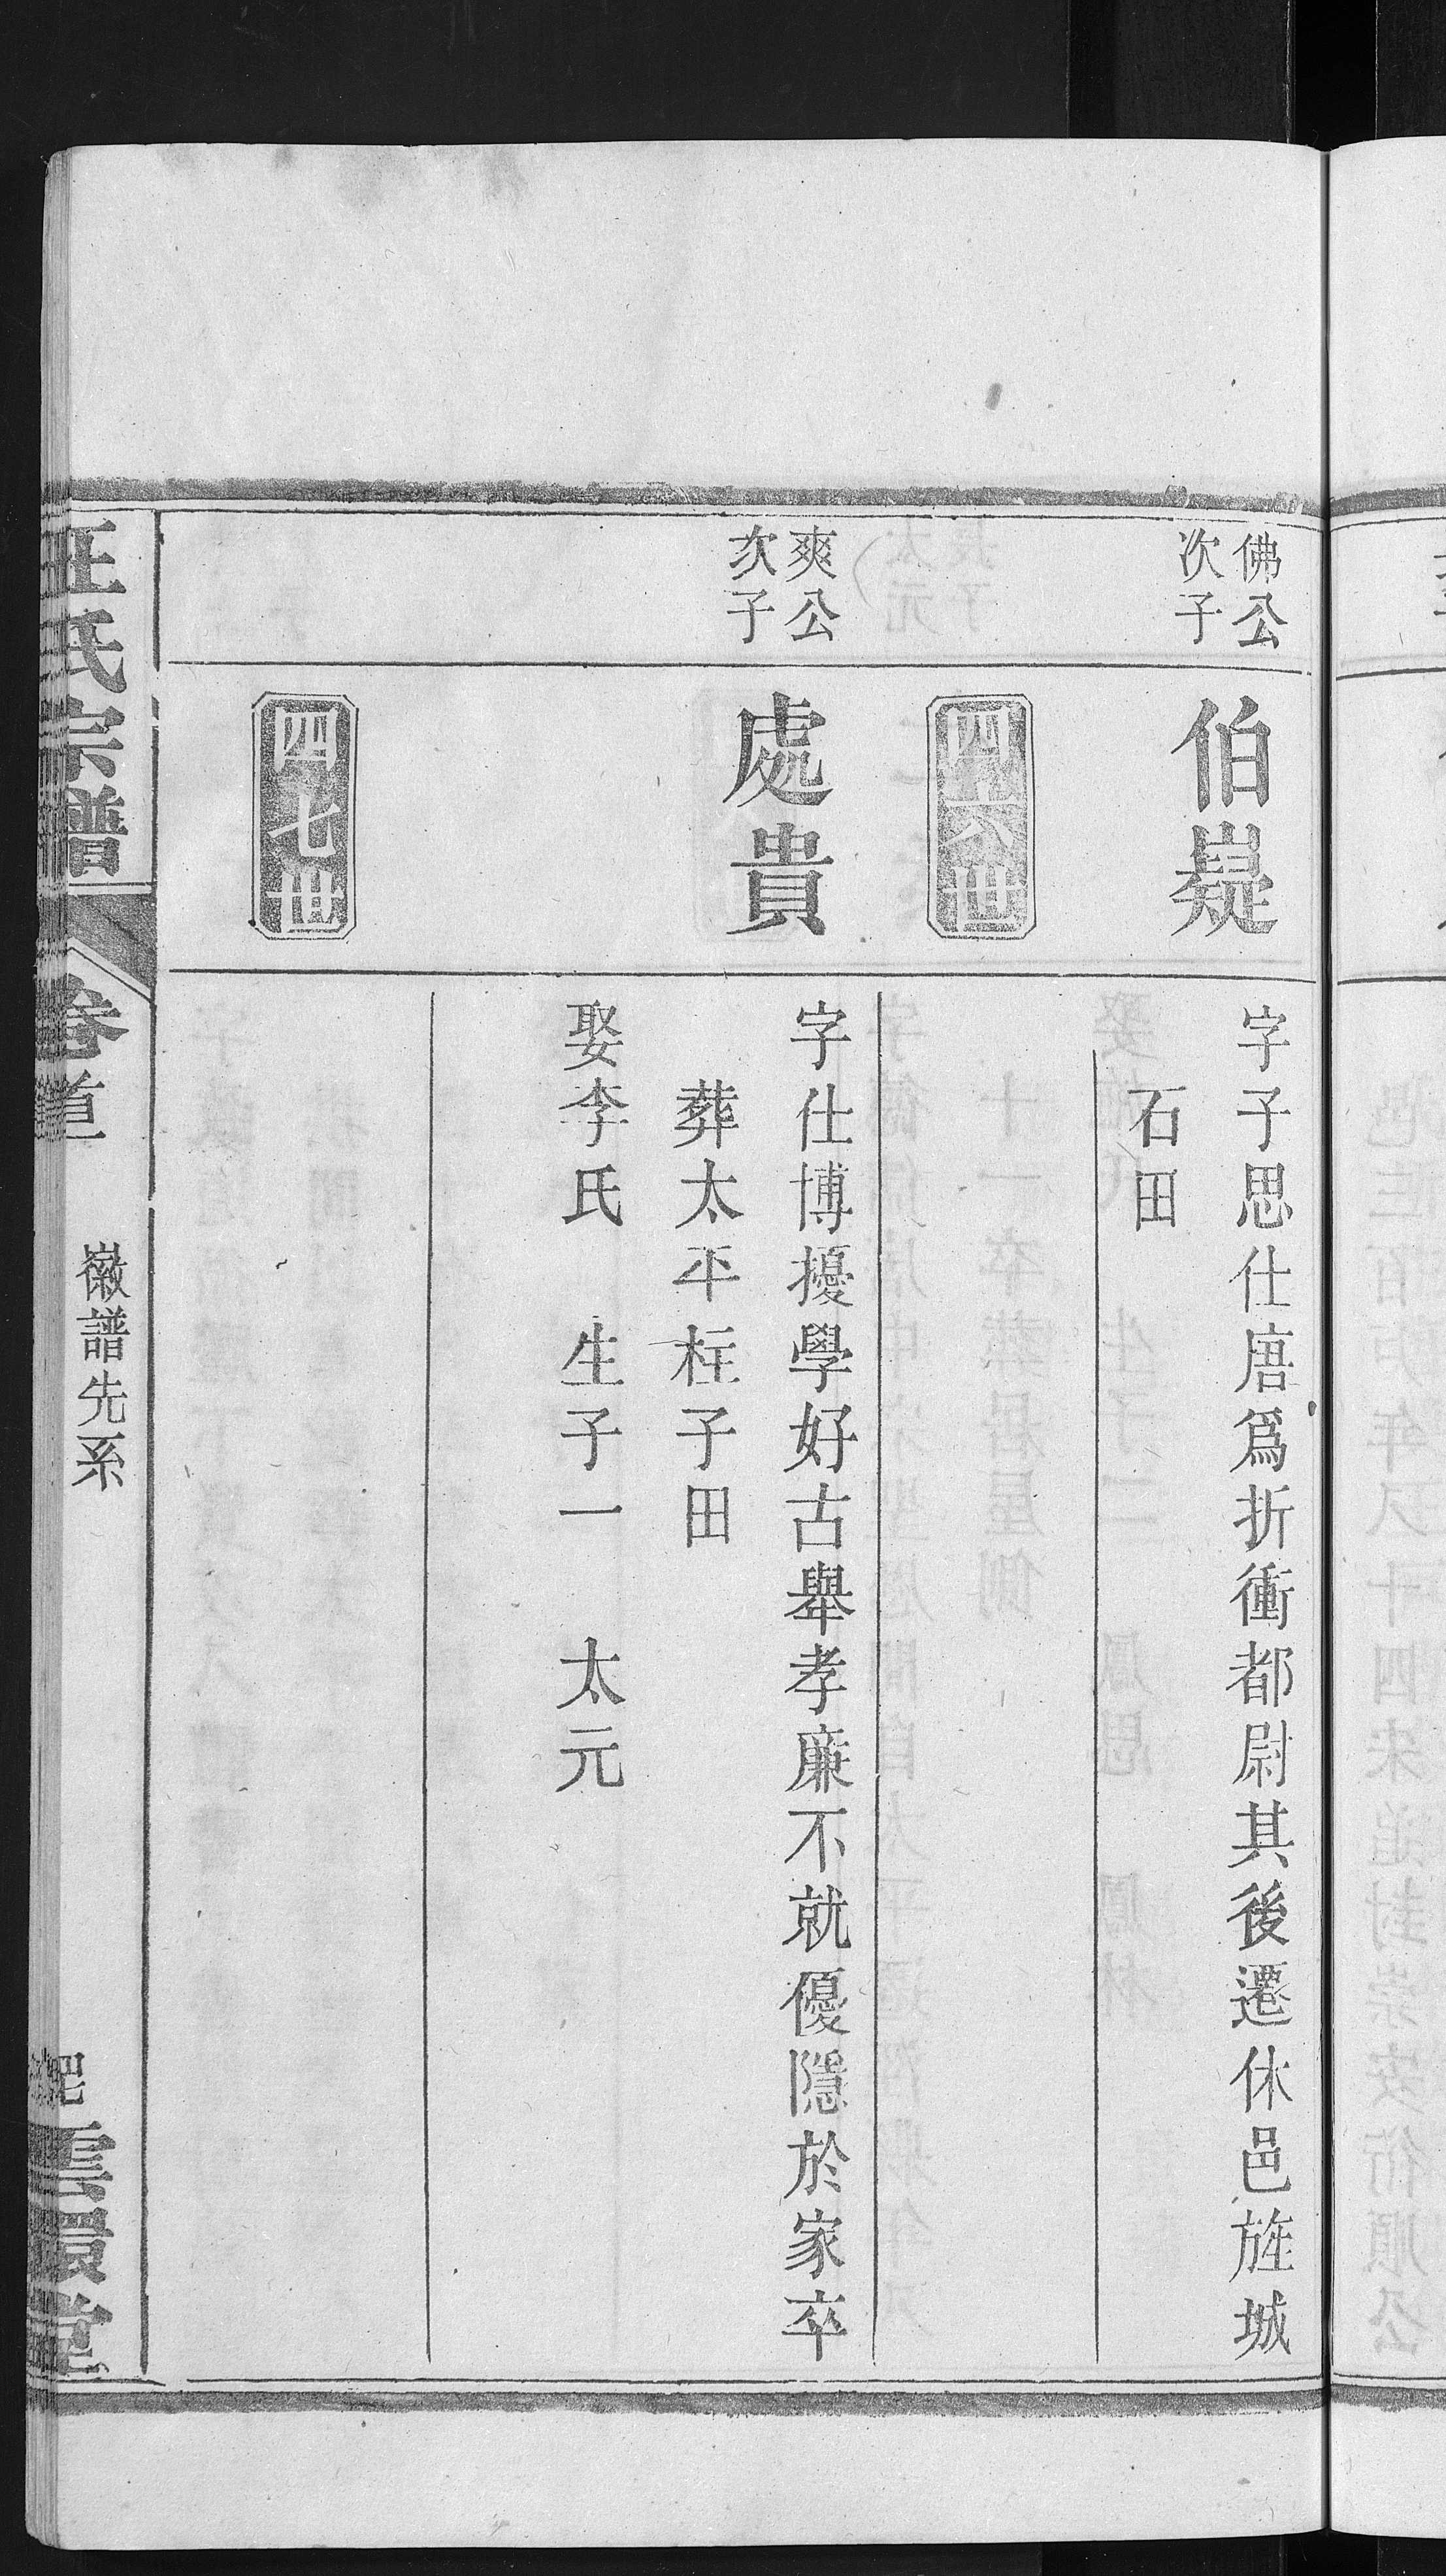 佛公
次子
伯嶷
字子思仕唐爲折衝都尉其後遷休邑旌城
石田
四六世
爽公
次子
處貴
字仕博擾學好古舉孝廉不就優隱於家卒
葬太平柱子田
娶李氏 生子一 太元
四七世
汪氏宗譜
卷首
徽譜先系
雲環堂